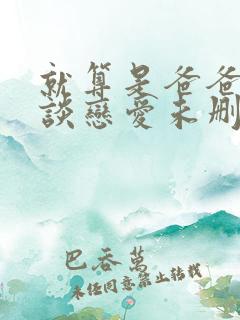 就算是爸爸
談戀愛未刪
巴吞萬
未經同意禁止轉載